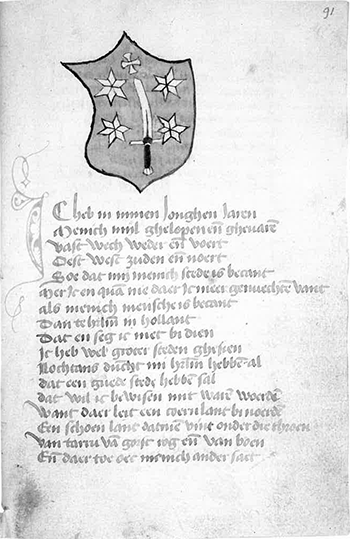 91
IC heb in minen Jonghen Jaren
Menich mil ghelopen en̄ ghevarē
Vast wech weder en̄ voert
Oest west zuden en̄ noert
Soe dat mij menich stede is becant
Mer Ic en quā nie daer Ic meer genuechten vant
als menich mensche is becant
Dan te hairlē in hollant
Dat en seg ic niet bi dien
Ic heb wel groter steden ghesien
Nochtans dunct mi hairlē hebbet al
dat een guede stede hebben sal
dat wil ic bewisen mit warē woerdē
Want daer leit een coern lant bi noerdē
Een schoen lant datmen vint onder die throen
van tarru vā gorst rog en̄ van boen
En̄ daer toe oec menich ander saet